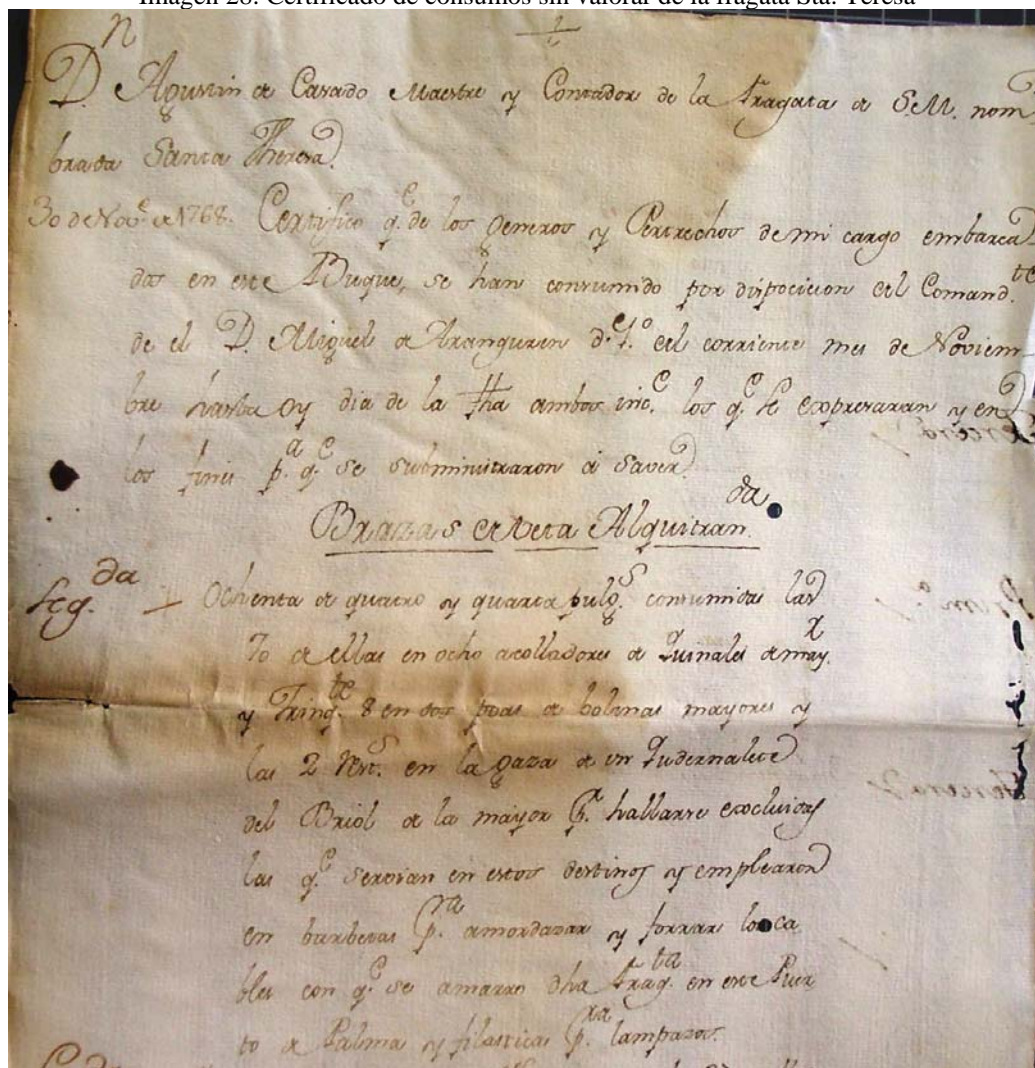 Imagen 28. Certificado de consumos sin valorar de la fragata Sta. Teresa
D. Agustin de Casado Maestre y Contador de la Fragata de S.M. nom
brada Santa Theresa
30 de Nov.e de 1768. Certifico q.e de los Generos y Pertrechos de mi cargo embarca
dos en este Buque, se han consumido por disposicion del Comand.te
de el D. Miguel de Aranguren d.el 1.o del corriente mes de Noviem
bre hasta oy dia de la fha ambos inc.e los q.e se expresaran y en
los fines p.a q.e se subministraron á saver
Brazas de Veta Alquitran.da
Seg.da Ochenta de quatro y quarta pulg.s consumidas las
70 de ellas en ocho acolladores de Quinales de may.r
y Trinq.te 8 en dos poas de bolinas mayores y
las 2 rest.s en la gaza de un Quadernalete
del Briol de la mayor p.r hallarse excluidas
las q.e servian en estos destinos y emplearon
en barbetas p.ra amordazar y forrar los ca
bles con q.e se amarró dha Frag.ta en este Puer
to de Palma y filasticas p.ra lampazos.